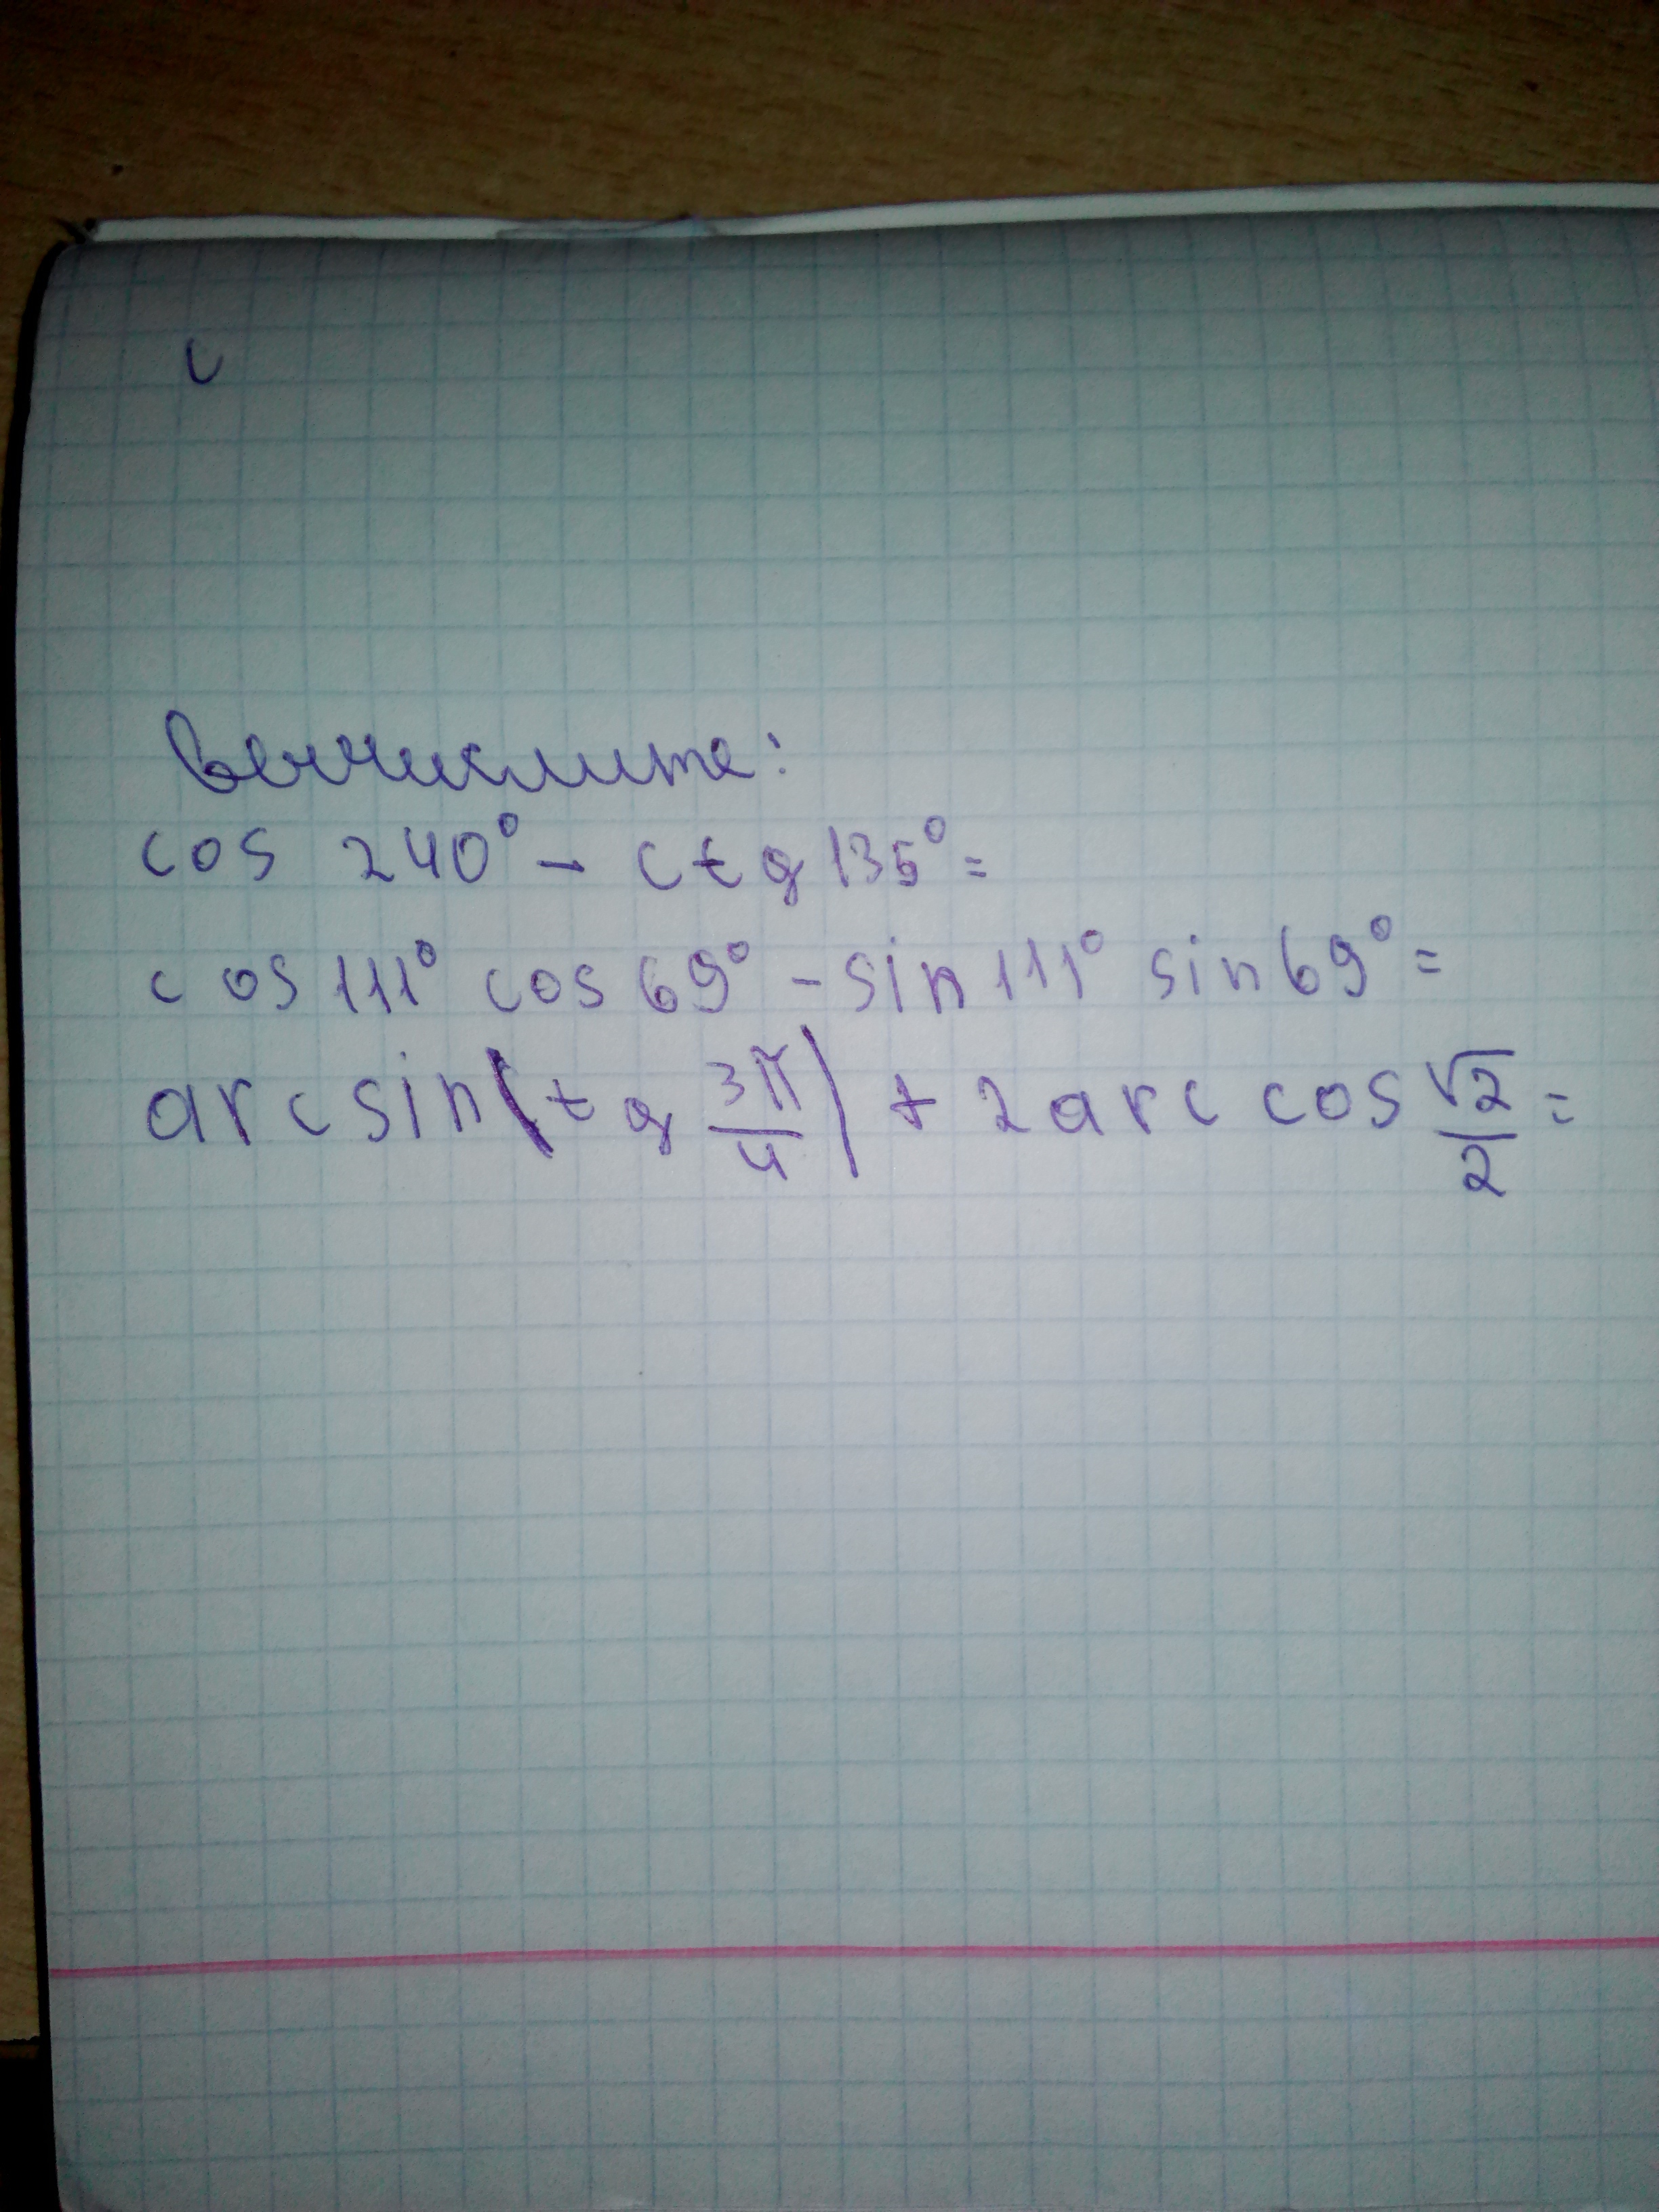 с
Вычислите:
cos 240° - ctg 135° =
cos 111° cos 69° - sin 111° sin 69° =
arcsin(tg 3π/4) + 2 arccos √2/2 =